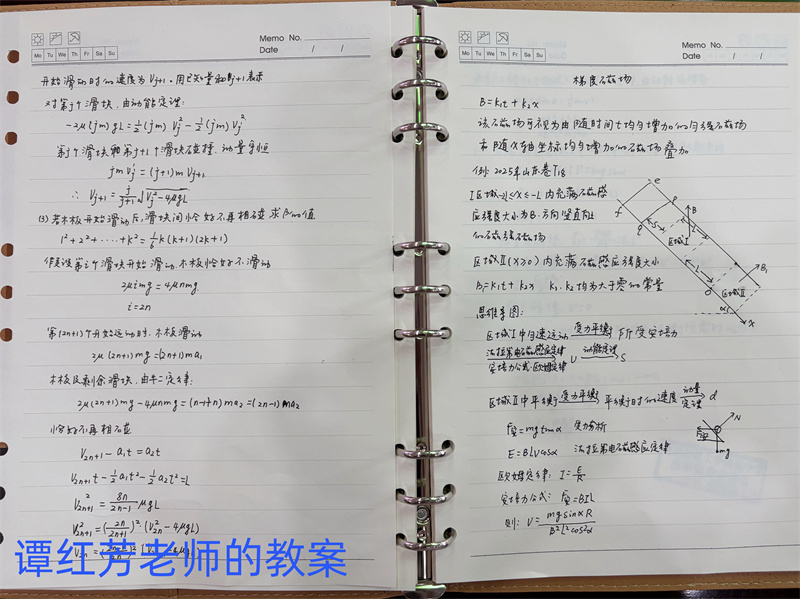 Memo No.
Mo Tu We Th Fr Sa Su
Date / /
开始滑动时的速度为Vj+1，用已知量和Vj+1表示
对第j个滑块，由动能定理：
-2μ(jm)gL=½(jm)Vj'²-½(jm)Vj²
第j个滑块和第j+1个滑块碰撞，动量守恒
jmVj'=(j+1)mVj+1
∴ Vj+1=j/(j+1)√(Vj²-4μgL)
(3) 若木板开始滑动后，滑块间恰好不再相碰，求的值
1²+2²+····+k²=1/6k(k+1)(2k+1)
假设第i个滑块开始滑动，木板恰好不滑动
2μimg=4μnmg
i=2n
第(2n+1)个开始运动时，木板滑动
2μ(2n+1)mg=(2n+1)ma₁
木板及剩余滑块，由牛二定律：
2μ(2n+1)mg-4μnmg=(n-1+n)ma₂=(2n-1)ma₂
恰好不再相碰
V2n+1-a₁t=a₂t
V2n+1t-½a₁t²-½a₂t²=L
V2n+1²=8n/(2n-1)μgL
V2n+1²=(2n/(2n+1))²(V2n²-4μgL)
谭红芳老师的教案
Memo No.
Mo Tu We Th Fr Sa Su
Date / /
梯度磁场
B=k₁t+k₂x
该磁场可视为由随时间t均匀增加的匀强磁场
和随x方向坐标均匀增加的磁场叠加
例：2025年山东卷T18
I区域-2L≤x≤-L内充满磁感
应强度大小为B，方向竖直向上
的匀强磁场
区域Ⅱ(x≥0)内充满磁感应强度大小
B₁=k₁t+k₂x k₁、k₂均为大于零的常量
e
f
P
Q
S
B
L
区域I
L
B₁
O
区域Ⅱ
α
x
思维导图：
区域I中匀速运动 受力平衡→ F所受安培力
法拉第电磁感应定律 安培力公式·欧姆定律→ U 动能定理→ S
区域Ⅱ中平衡 受力平衡→ 平衡时的速度 动量定理→ d
F安=mgtanα 受力分析
E=BLVcosα 法拉第电磁感应定律
欧姆定律：I=E/R
安培力公式：F安=BIL
则：V=mgsinαR/B²L²cos²α
N
F安
mg